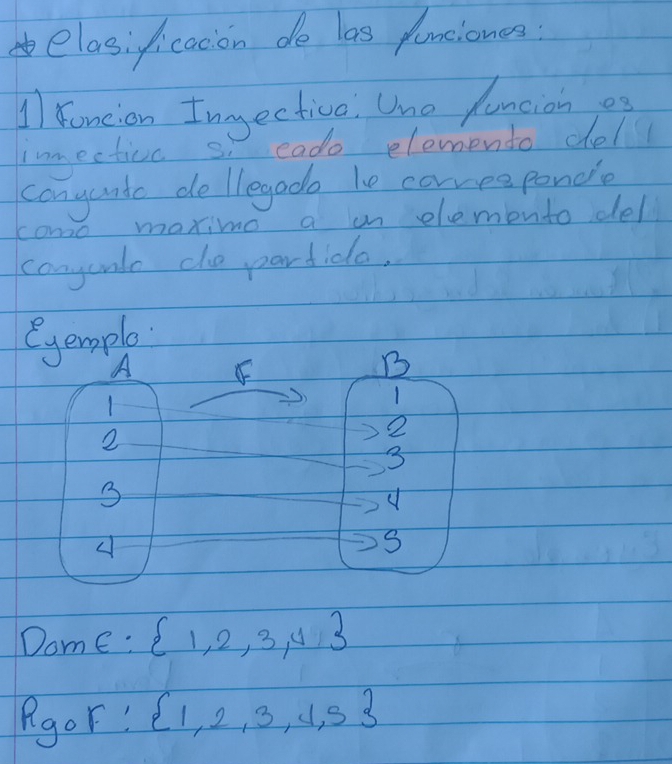 * Clasificación de las funciones:
1) Funcion Inyectiva: Una función es
inyectiva si cada elemento del
conjunto de llegada le corresponde
como maximo a un elemento del
conjunto de partida.
Ejemplo:
A F B
1 1
2 2
3 3
4 4
5
Dom F: { 1, 2, 3, 4, }
Rgo F: { 1, 2, 3, 4, 5 }